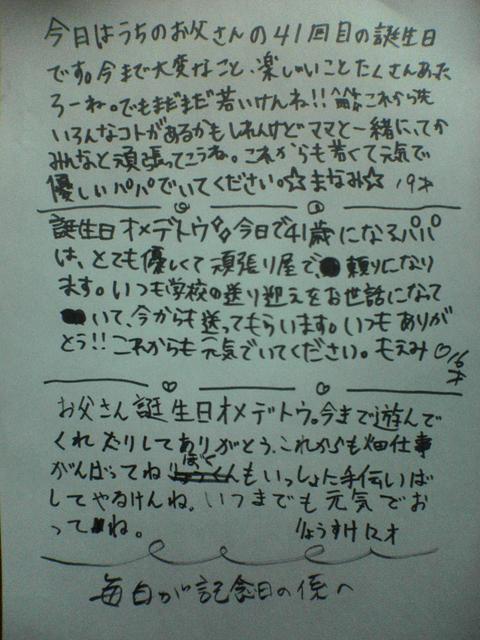 今日はうちのお父さんの41回目の誕生日
です。今まで大変なこと、楽しいことたくさんあった
ろーね。でもまだまだ若いけんね!! これから先
いろんなコトがあるかもしれんけどママと一緒に、てか
みんなと頑張ってこうね。これからも若くて元気で
優しいパパでいてください。☆まなみ☆ 19才
誕生日オメデトウ 今日で41歳になるパパ
は、とても優しくて頑張り屋で、頼りになり
ます。いつも学校の送り迎えをお世話になって
いて、今からも送ってもらいます。いつもありが
とう!! これからも元気でいてください。もえみ♡16才
お父さん誕生日オメデトウ。今まで遊んで
くれたりしてありがとう。これからも畑仕事
がんばってねぼくもいっしょに手伝いば
してやるけんね。いつまでも元気でお
ってね。 りょうすけ12才
毎日が記念日の俺へ